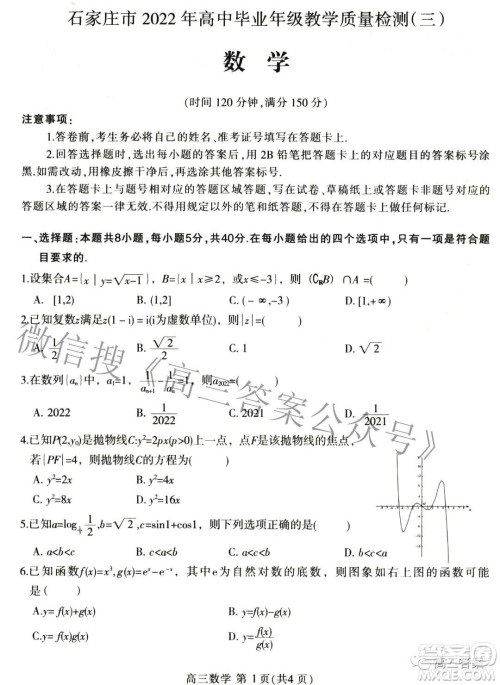 石家庄市 2022 年高中毕业年级教学质量检测(三)
数 学
(时间 120 分钟,满分 150 分)
注意事项:
1.答卷前,考生务必将自己的姓名、准考证号填写在答题卡上.
2.回答选择题时,选出每小题的答案后,用 2B 铅笔把答题卡上的对应题目的答案标号涂
黑.如需改动,用橡皮擦干净后,再选涂其他答案标号.
3.在答题卡上与题号相对应的答题区域答题,写在试卷、草稿纸上或答题卡非题号对应的
答题区域的答案一律无效.不得用规定以外的笔和纸答题,不得在答题卡上做任何标记.
一、选择题:本题共8小题,每小题5分,共40分.在每小题给出的四个选项中,只有一项是符合题
目要求的.
1.设集合A={x | y=√(x-1)},B={x | x≥2,或x≤-3},则 (∁RB) ∩A =( )
A. [1,2) B. (1,2] C. (-∞,-3) D. [1,+∞)
2.已知复数z满足z(1-i)=i(i为虚数单位),则|z|=( )
A. 1/2 B. √2/2 C. 1 D. √2
3.在数列{an}中,a1=1, 1/an+1 - 1/an =1,则a2022=( )
A. 2022 B. 1/2022 C. 2021 D. 1/2021
4.已知P(2,y0)是抛物线C:y²=2px(p>0)上一点,点F是该抛物线的焦点,
若|PF|=4,则抛物线C的方程为( )
A. y²=2x B. y²=4x
C. y²=8x D. y²=16x
5.已知a=log 1/2,b=√2,c=sin1+cos1,则下列选项正确的是( )
A. a<b<c B. a<c<b C. c<a<b D. b<c<a
6.已知函数f(x)=x³,g(x)=eˣ-e⁻ˣ,其中e为自然对数的底数,则图象如右上图的函数可能
是( )
A.y= f(x)+g(x) B.y= f(x)-g(x)
C.y= f(x)g(x) D.y= f(x)/g(x)
高三数学 第 1 页(共4 页)
微信搜《高三答案公众号》
高三答案
MXQE.COM